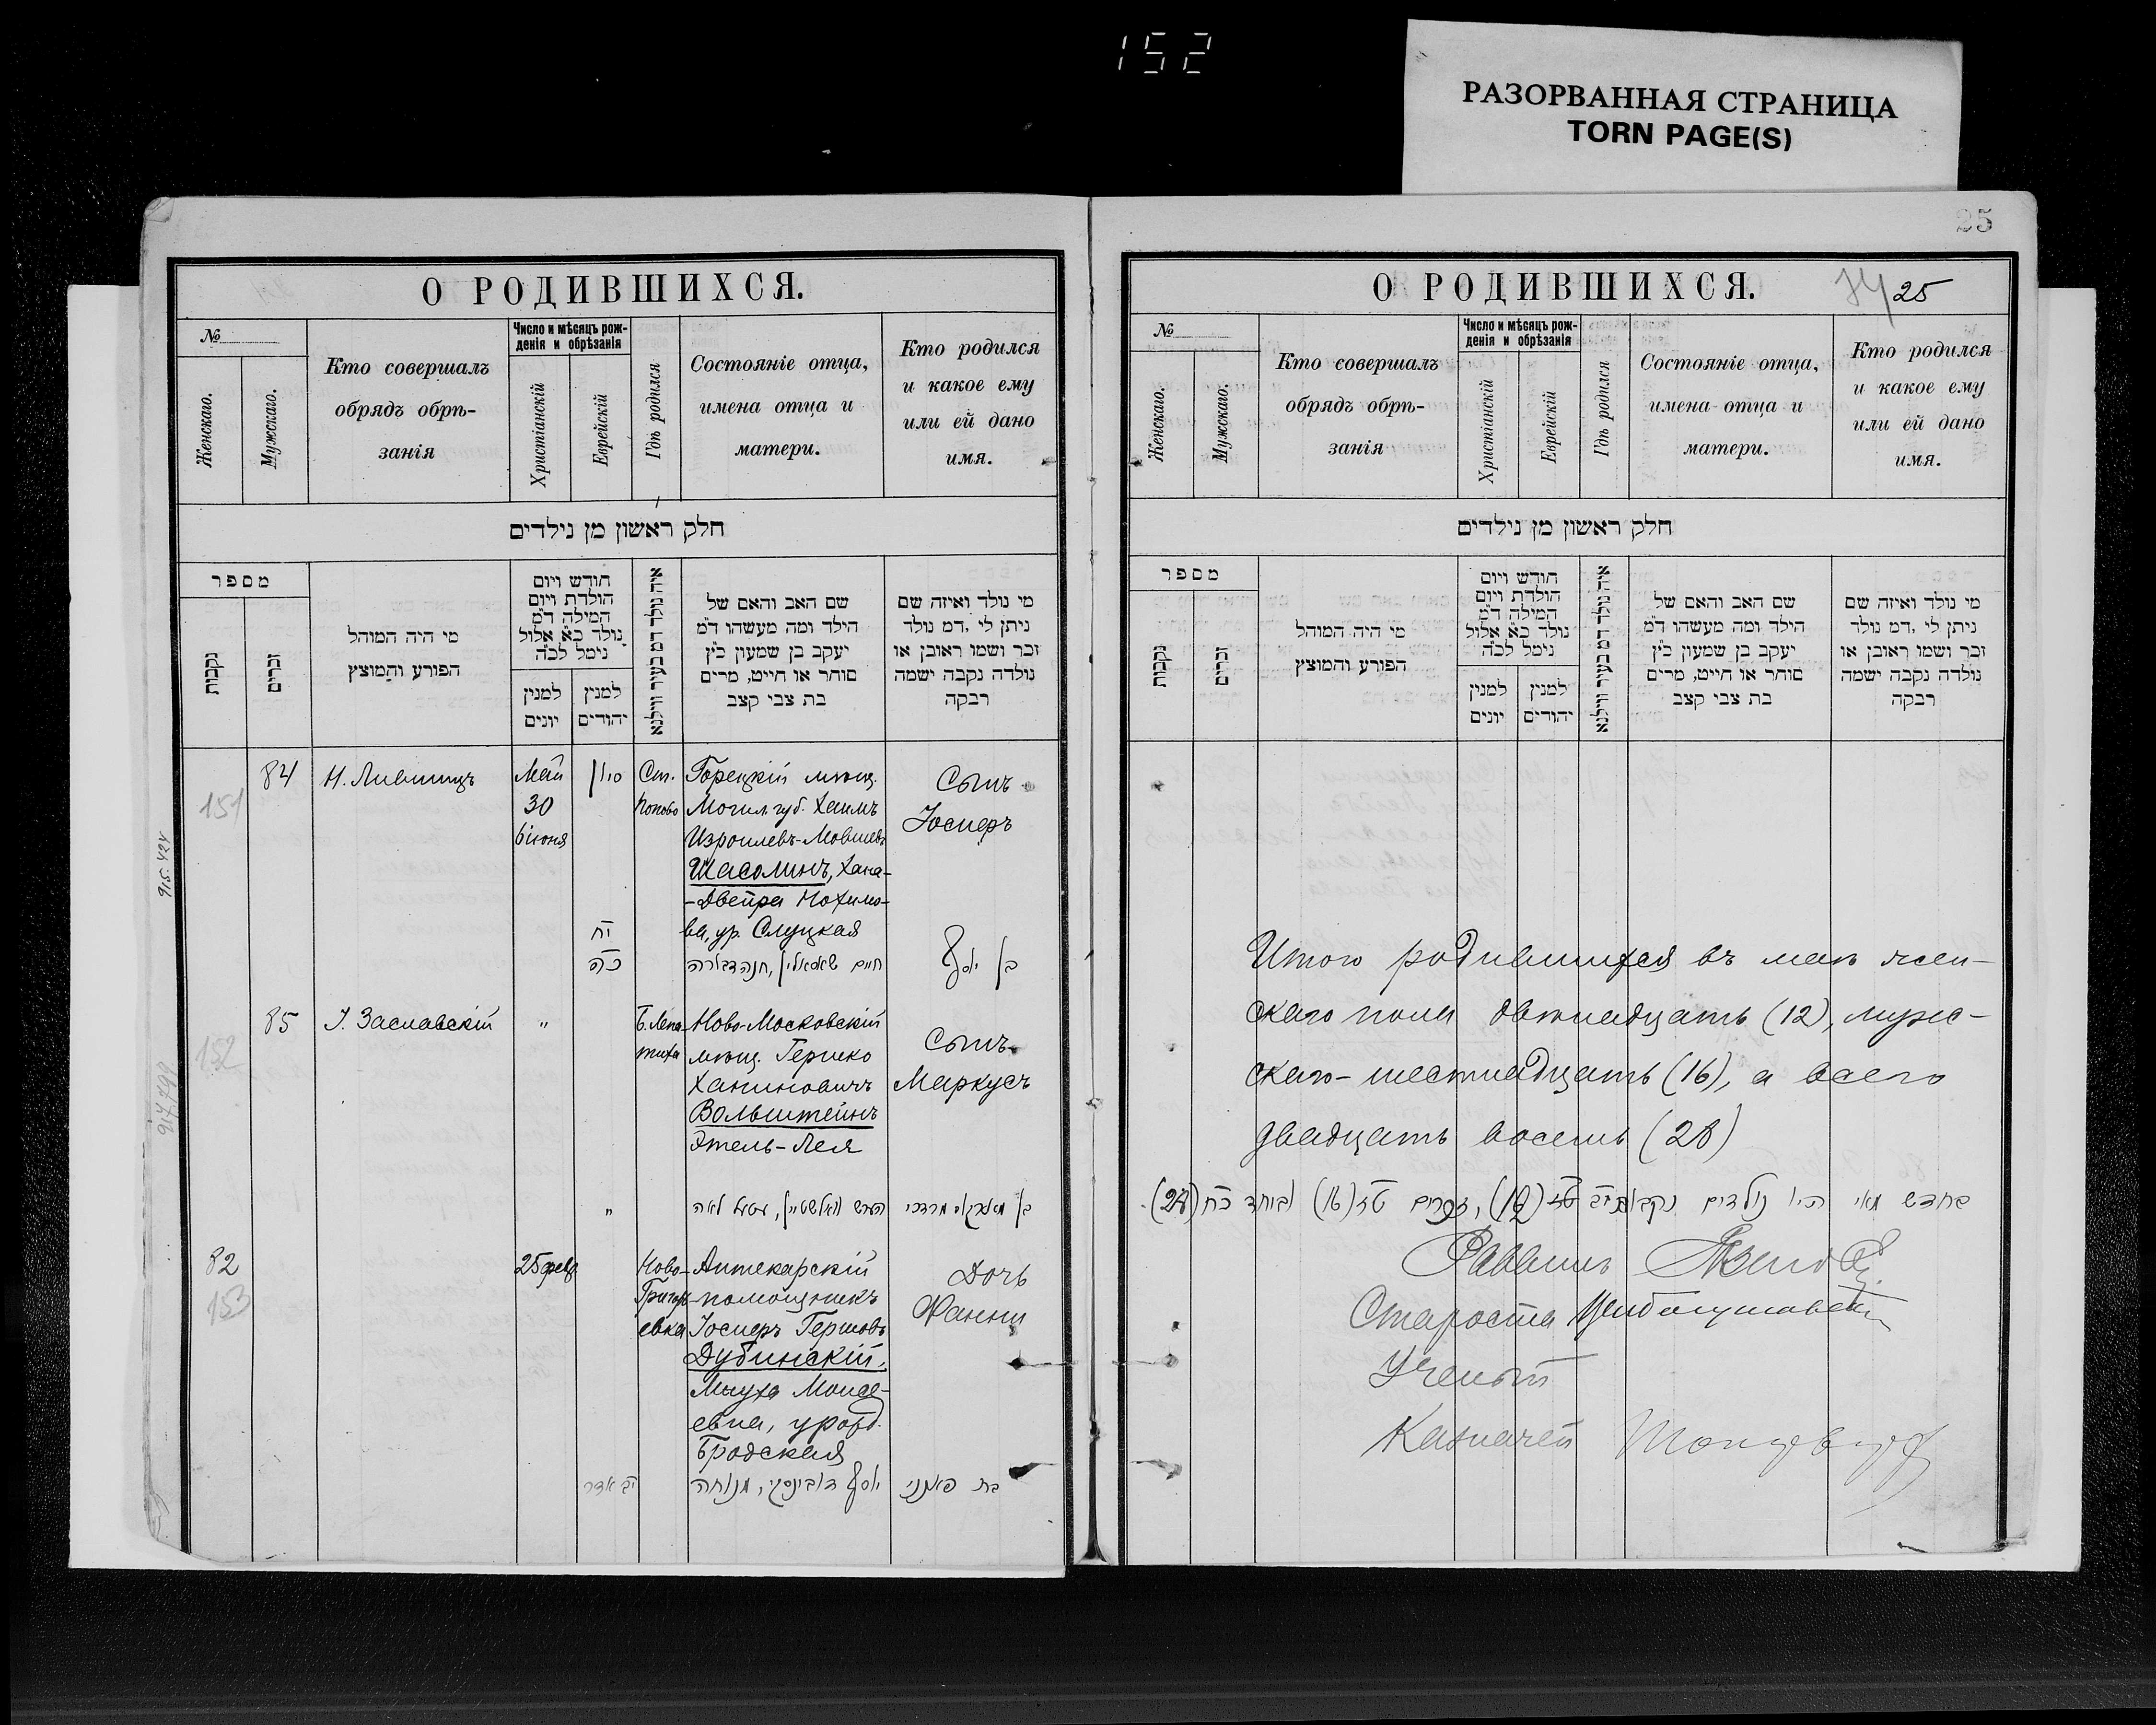 152
РАЗОРВАННАЯ СТРАНИЦА
TORN PAGE(S)
О РОДИВШИХСЯ.
№
Женскаго.
Мужскаго.
Кто совершалъ
обрядъ обрѣ-
занія
Число и мѣсяцъ рож-
денія и обрѣзанія
Христіанскій
Еврейскій
Гдѣ родился
Состояніе отца,
имена отца и
матери.
Кто родился
и какое ему
или ей дано
имя.
חלק ראשון מן נילדים
מספר
נקבות
זכרים
מי היה המוהל
הפורע והמוצץ
חודש ויום
הולדת ויום
המילה ד״מ
נולד כ״א אלול
נימל לכ״ה
למנין
יונים
למנין
יהודים
איה נולד דמ בעיר ווילנא
שם האב והאם של
הילד ומה מעשהו ד״מ
יעקב בן שמעון כ״ץ
סוחר או חייט, מרים
בת צבי קצב
מי נולד ואיזה שם
ניתן לי ,דמ נולד
זכר ושמו ראובן או
נולדה נקבה ישמה
רבקה
151
84
Н. Лившицъ
Май
30
6 іюня
סיון
יח
כה
Ст.
Попово
Горецкій мѣщ.
Могил. губ. Хаимъ
Изроилевъ-Мовшевъ
Шасолинъ, Хана-
-Двейра Нохимо-
ва, ур. Слуцкая
חיים שאסאלין, חנה דבורה
Сынъ
Іосифъ
בן יוסף
152
85
І. Заславскій
"
Б. Лепа-
тиха
Ново-Московскій
мѣщ. Гершко
Ханиновичъ
Вольштейнъ
Этель-Лея
"
הערש וואלשטיין, עטעל לאה
Сынъ
Маркусъ
בן מארקוס מרדכי
82
153
25 февр
Ново-
Григорь-
евка
Аптекарскій
помощникъ
Іосифъ Гершовъ
Дубинскій,
Мнуха Моисе-
евна, урожд.
Бродская
יב אדר
יוסף דובינסקי, מנוחה
Дочь
Фанни
בת פאנני
915424
917798
25
О РОДИВШИХСЯ.
25
№
Женскаго.
Мужскаго.
Кто совершалъ
обрядъ обрѣ-
занія
Число и мѣсяцъ рож-
денія и обрѣзанія
Христіанскій
Еврейскій
Гдѣ родился
Состояніе отца,
имена отца и
матери.
Кто родился
и какое ему
или ей дано
имя.
חלק ראשון מן נילדים
מספר
נקבות
זכרים
מי היה המוהל
הפורע והמוצץ
חודש ויום
הולדת ויום
המילה ד״מ
נולד כ״א אלול
נימל לכ״ה
למנין
יונים
למנין
יהודים
איה נולד דמ בעיר ווילנא
שם האב והאם של
הילד ומה מעשהו ד״מ
יעקב בן שמעון כ״ץ
סוחר או חייט, מרים
בת צבי קצב
מי נולד ואיזה שם
ניתן לי ,דמ נולד
זכר ושמו ראובן או
נולדה נקבה ישמה
רבקה
Итого родившихся въ маѣ жен-
скаго пола двѣнадцать (12), муж-
скаго - шестнадцать (16), а всего
двадцать восемь (28)
בחדש מאי היו נולדים נקבות יב (12), זכרים טז (16) וביחד כח (28)
Раввинъ
Староста
Ученый
Казначей